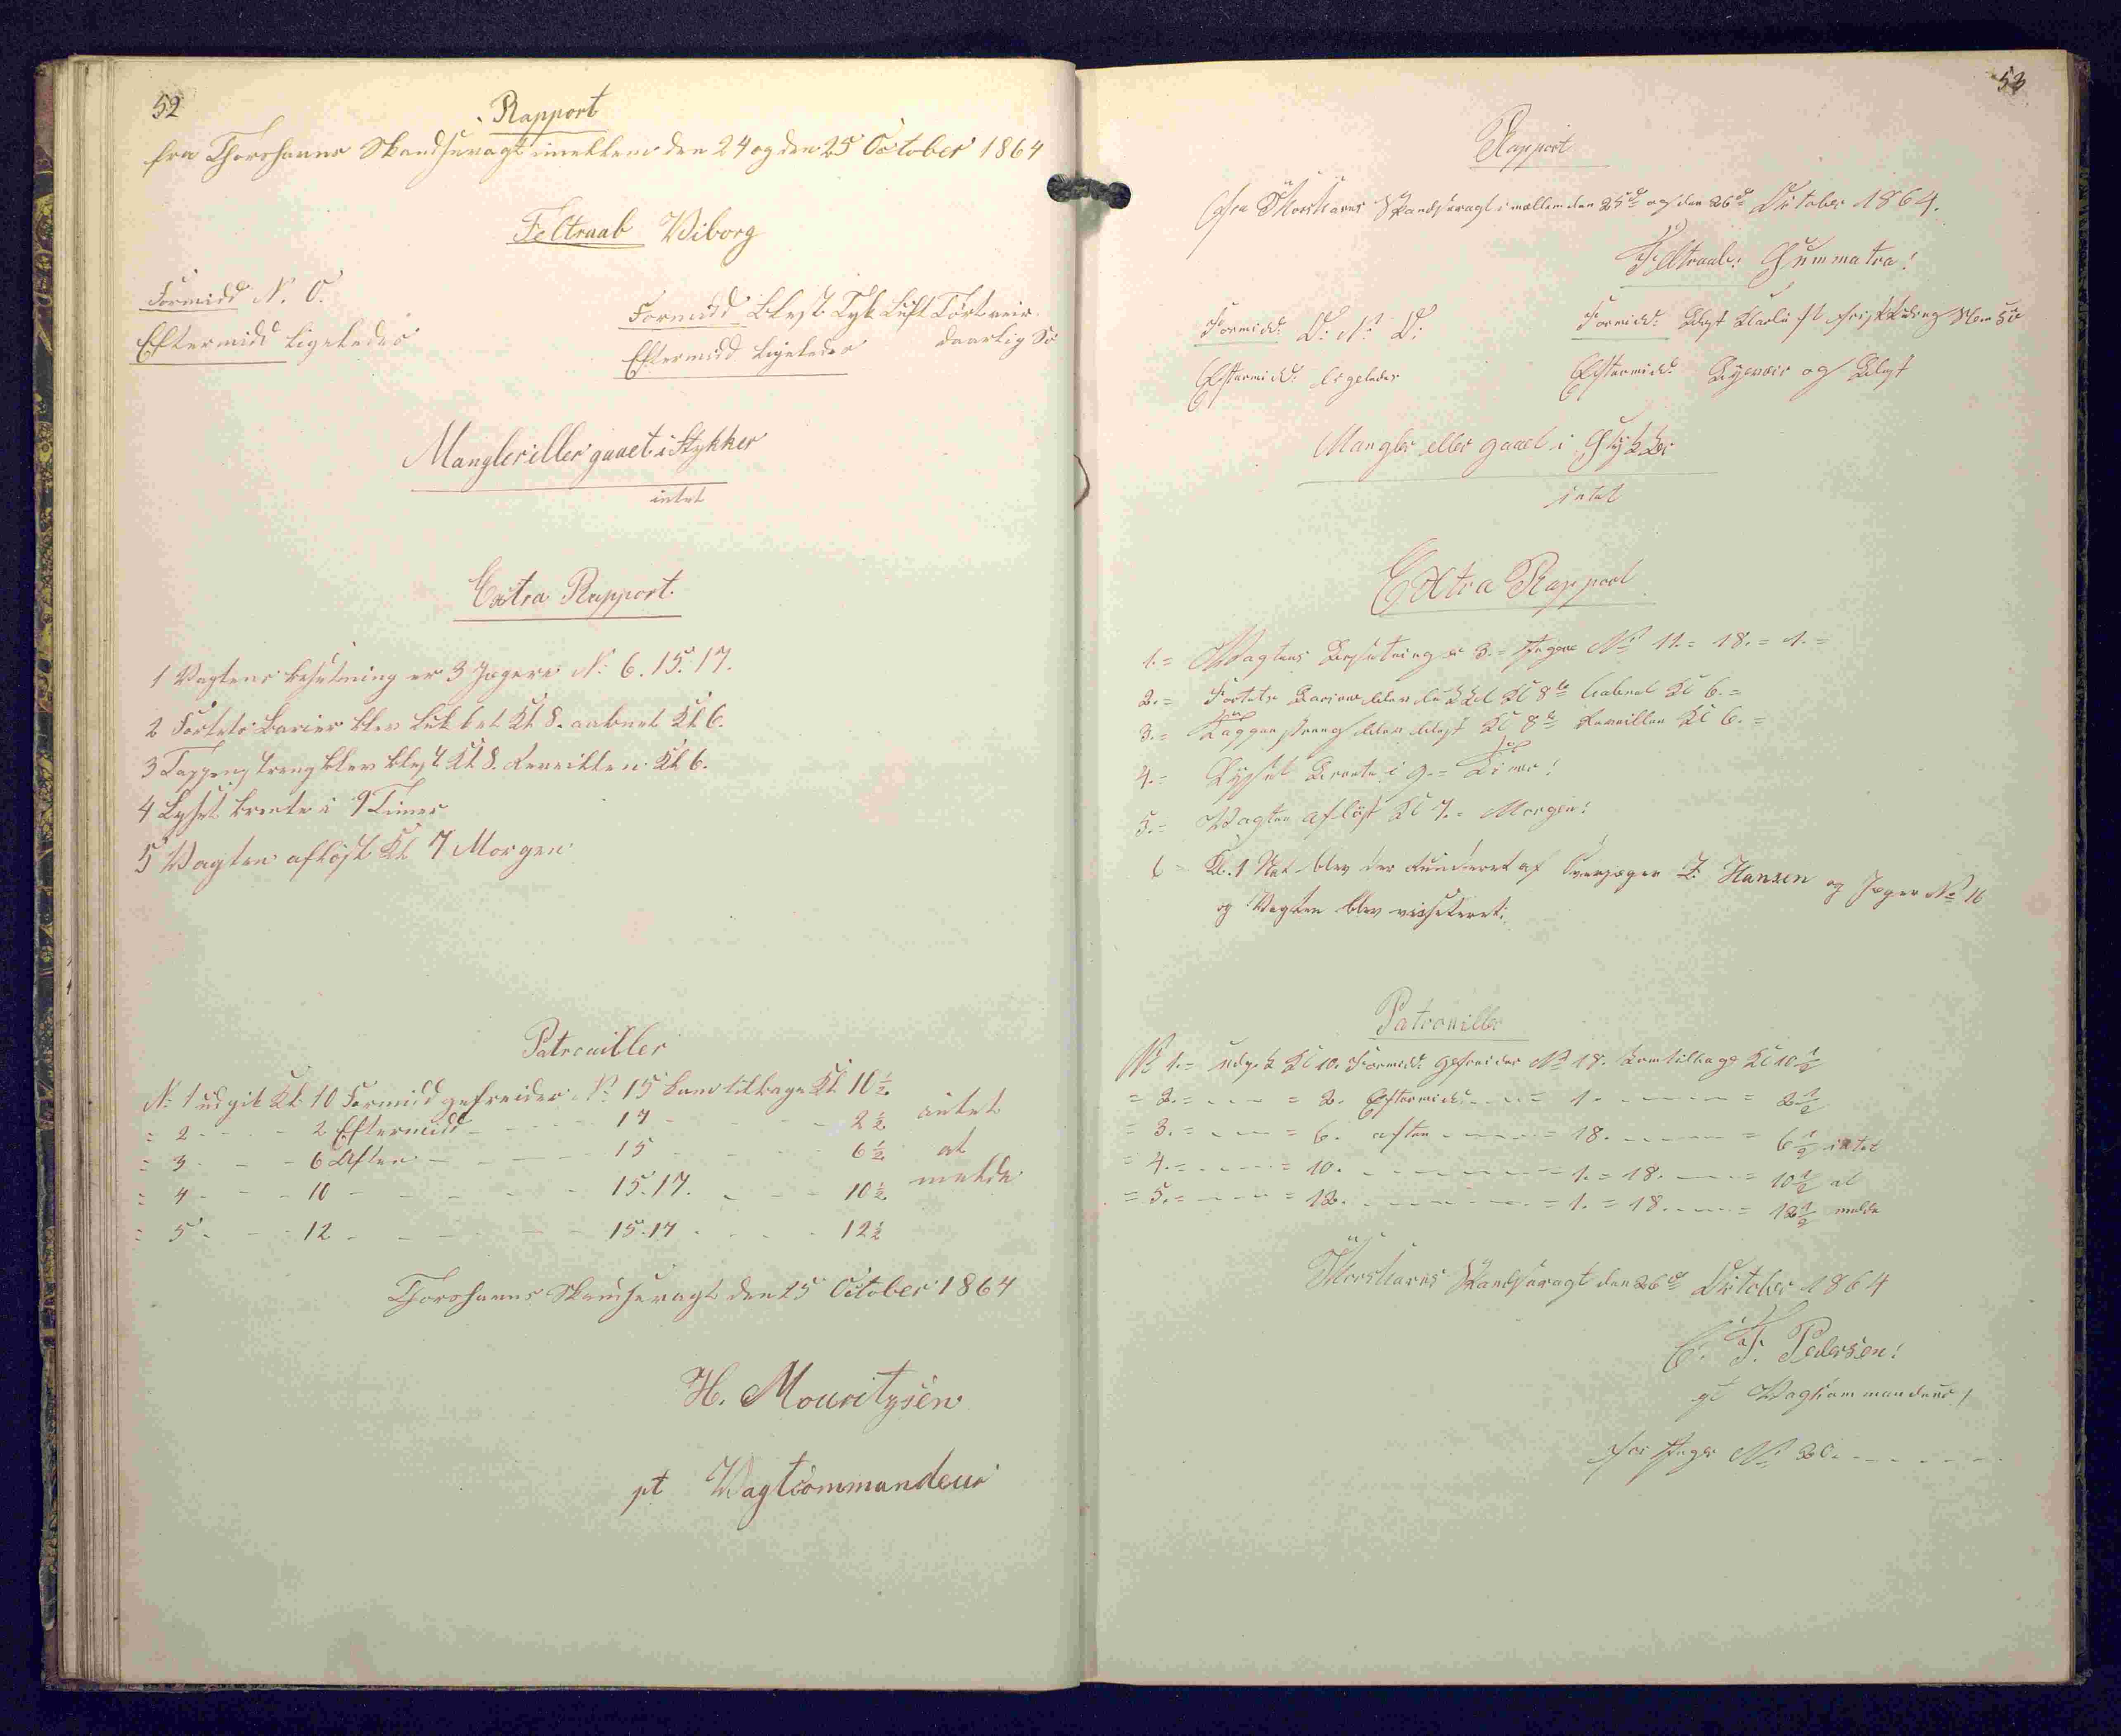 52
Rapport
fra Thorshavns Skandsevagt imellem den 24 og den 25 October 1864
Feltraab Viborg
Formidd N. O.
Eftermidd ligeledes
Formidd blæst Tyk Luft Tørt veir
Eftermidd ligeledes daarlig Sø
Mangler eller gaaet i Stykker
intet
Extra Rapport.
1 Vagtens besetning er 3 Jægere N: 6. 15. 17.
2 Fortets barier blev lukket Kl 8. aabnet Kl 6.
3 Tappenstreng blev blæst Kl 8. Reveillen Kl 6.
4 Lyset brente i 9 Timer
5 Vagten afløst Kl 7 Morgen
Patrouiller
N: 1 udgik Kl 10 Formidd gefreider N: 15 kom tilbage Kl 10 ½
= 2 - - - 2 Eftermidd - - - 17 - - - 2 ½ intet
= 3 - - - 6 Aften - - - 15 - - - 6 ½ at
= 4 - - - 10 - - - 15. 17. - - - 10 ½ melde
= 5 - - - 12 - - - 15. 17 - - - 12 ½
Thorshavns Skandsevagt den 25 October 1864
H. Mouritzsen
pt Vagtcommandeur
53
Rapport
fra Thorshavns Skandsevagt imellem den 25de og den 26de October 1864.
Feltraab: Summatra!
Formidd: O: N: O:
Eftermidd: ligeledes
Formidd: Blæst
Eftermidd: og Blæst
Mangler eller gaaet i Stykker
intet
Extra Rapport
1. = Vagtens Besetning er 3. = Jægere No 11. = 18. = 1. =
2. = Fortets Bariere blev lukket Kl 8te aabnet Kl 6. =
3. = Tappenstreng blev blæst Kl 8te Reveillen Kl 6. =
4. = Lyset Brente i 9. = Timer!
5. = Vagten afløst Kl 7. = Morgen!
6 = Kl. 1 Nat blev der runderet af Overjæger Z. Hansen og Jæger No 16
og Vagten blev visiteret.
Patrouiller
No 1. = udgik Kl 10. Formidd: gefreider No 18. kom tilbage Kl 10 ½
= 2. = - - - = 2. Eftermidd: - - - = 1. - - - = 2 ½
= 3. = - - - = 6. aften - - - = 18. - - - = 6 ½ intet
= 4. = - - - = 10. - - - = 1. = 18. - - - = 10 ½ at
= 5. = - - - = 12. - - - = 1. = 18. - - - = 12 ½ melde
Thorshavns Skandsevagt den 26de October 1864
T. Pedersen!
Vagtcommandeur!
for Jæger No 20. - - - - -